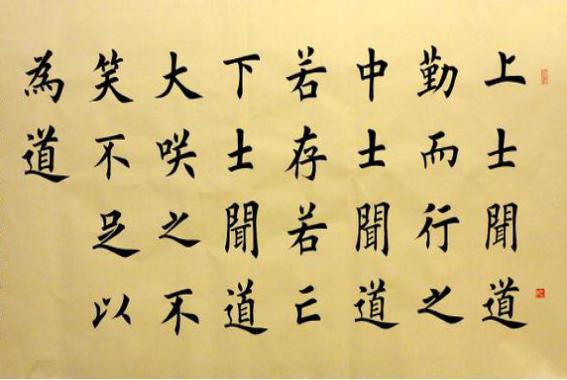 上士聞道
勤而行之
中士聞道
若存若亡
下士聞道
大咲之不
笑不足以
為道